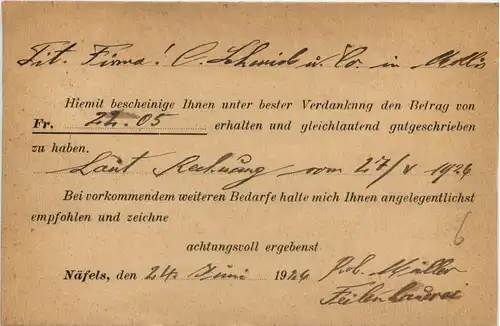 Tit. Firma! C. Schmid u. Co. in Mollis
Hiemit bescheinige Ihnen unter bester Verdankung den Betrag von
Fr. 22.05 erhalten und gleichlautend gutgeschrieben
zu haben.
Laut Rechnung vom 27/V 1926
Bei vorkommendem weiteren Bedarfe halte mich Ihnen angelegentlichst
empfohlen und zeichne
achtungsvoll ergebenst
Näfels, den 24. Juni 1926 Rob. Müller
Feilenhauerei
6